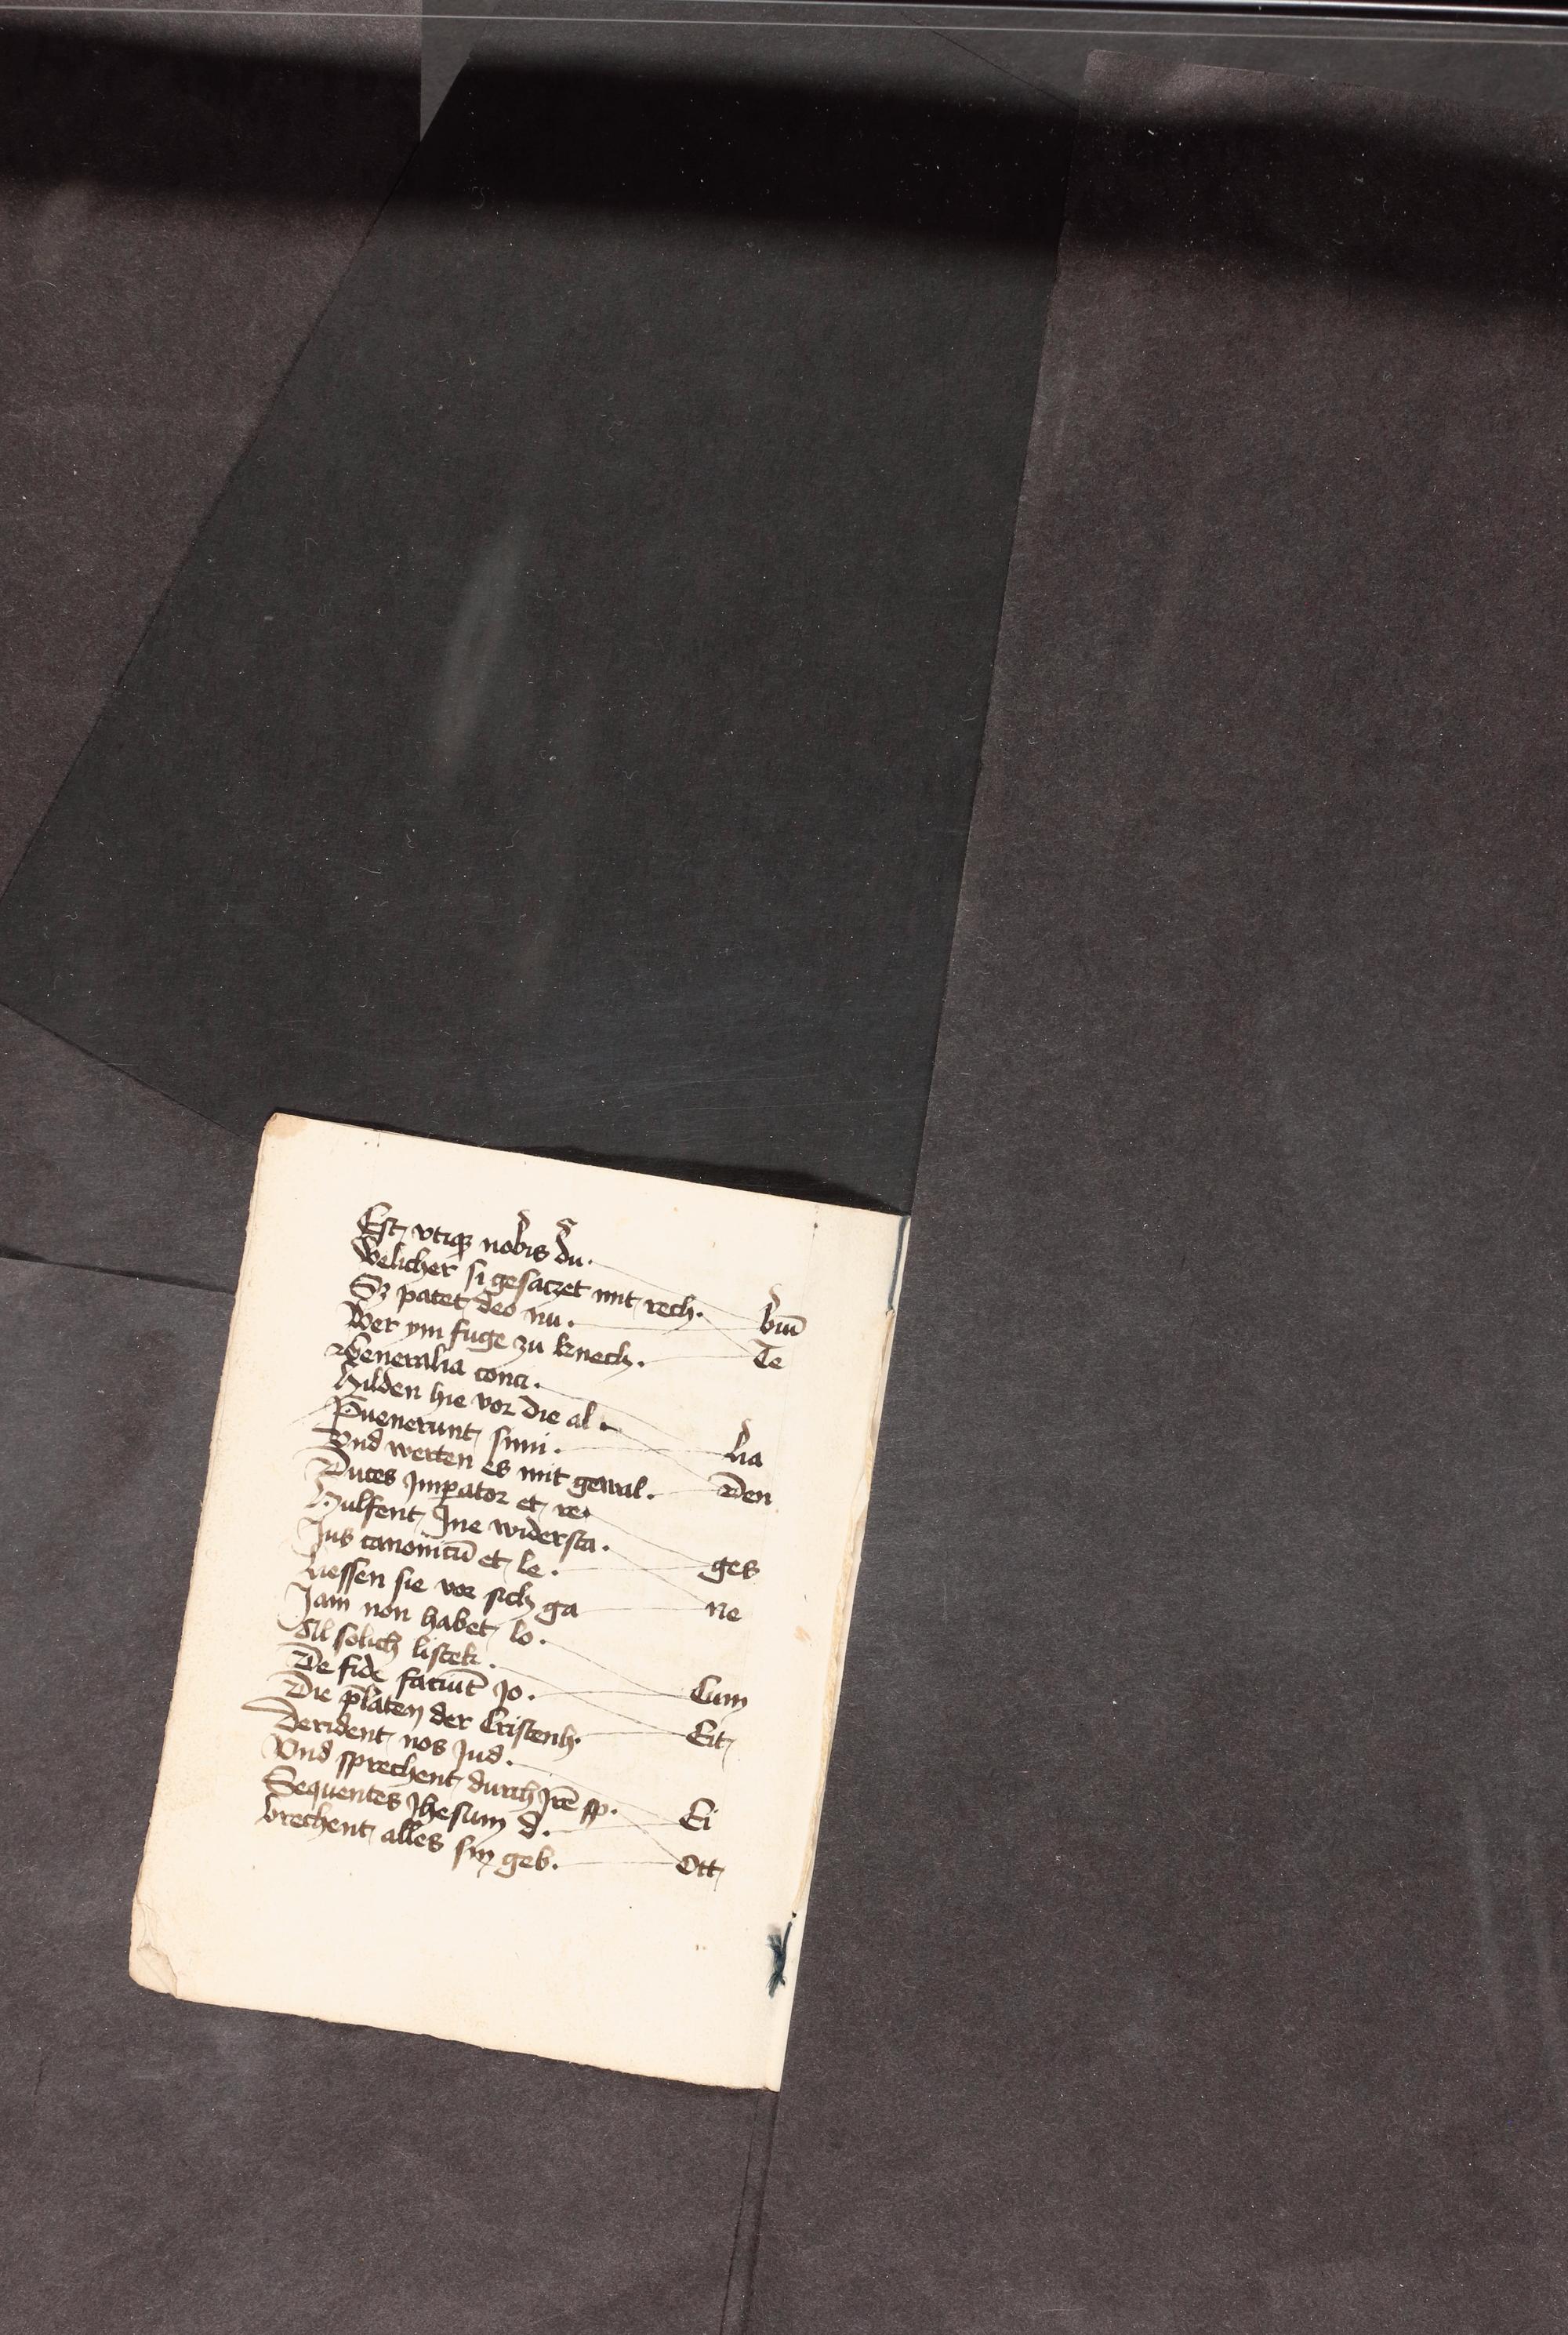 Est vtiqꝫ nobis du.
Welicher si gesaczet mit rech.
Sꝫ patet deo nu.
biū
Wer ym fuge zu knech.
Te
Generalia conci.
Hilden hie vor die al.
Puenerunt simi.
lia
Vnd werten es mit gewal.
Den
Duces Imꝑator et re.
Hulfent Ine widersta.
Jus canonicū et le.
ges
Liessen sie vor sich ga
ne
Jam non habet lo.
All solich listek.
De fide faciūt Jo.
Cum
Die p̄laten der Cristenh.
Eit
Derident nos Jud.
Vnd sprechent durch Jrē sp.
Sequentes Jhesum d.
Ei
brechent alles sin geb.
Ott